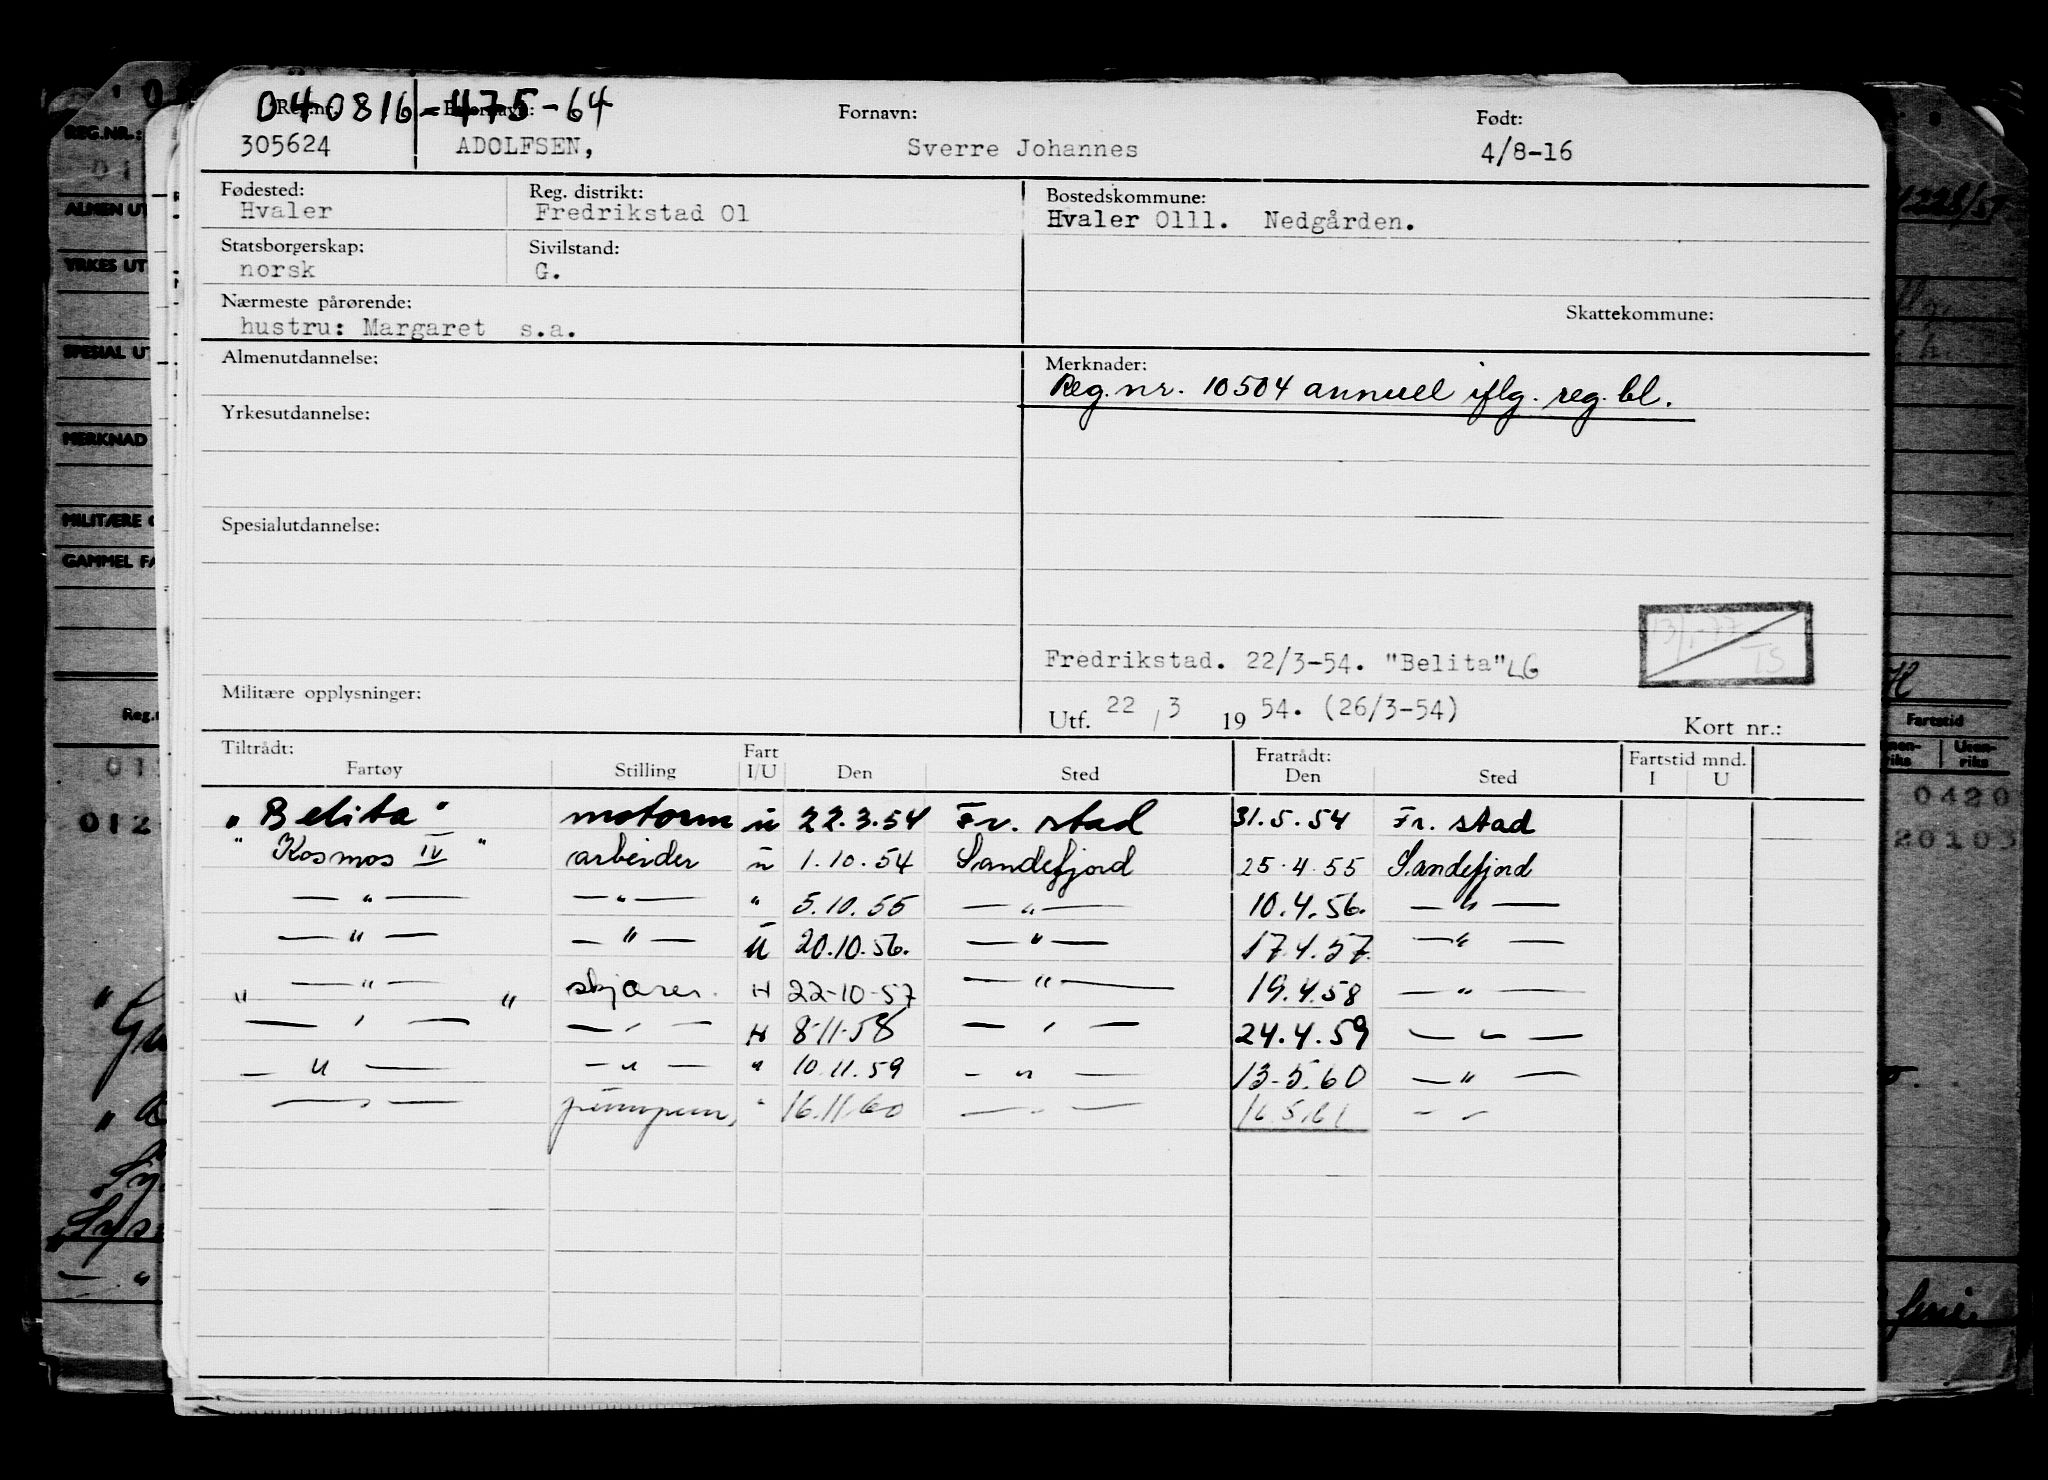 040816-475-64
Reg.nr. Etternavn: Fornavn: Født:
305624 ADOLFSEN, Sverre Johannes 4/8-16
Fødested: Reg. distrikt: Bostedskommune:
Hvaler Fredrikstad 01 Hvaler 0111. Nedgården.
Statsborgerskap: Sivilstand:
norsk G.
Nærmeste pårørende: Skattekommune:
hustru: Margaret s.a.
Almenutdannelse: Merknader:
Reg.nr. 10504 annuel iflg. reg.bl.
Yrkesutdannelse:
Spesialutdannelse:
13/1-77
TS
Fredrikstad. 22/3-54. "Belita" LG
Militære opplysninger:
Utf. 22 / 3 19 54. (26/3-54) Kort nr.:
Tiltrådt: Fart Fratrådt: Fartstid mnd.
Fartøy Stilling I/U Den Sted Den Sted I U
"Belita" motorm u 22.3.54 Fr. stad 31.5.54 Fr. stad
"Kosmos IV" arbeider u 1.10.54 Sandefjord 25.4.55 Sandefjord
— " — — " — " 5.10.55 — " — 10.4.56. — " —
— " — — " — U 20.10.56. — " — 17.4.57. — " —
" — " — " skjærer. H 22-10-57 — " — 19.4.58 — " —
— " — — " — H 8-11-58 — " — 24.4.59 — " —
— " — — " — " 10.11.59 — " — 13.5.60 — " —
— " — pumpem, " 16.11.60 — " — 16.5.61 — " —
REG.NR.:
ALMEN UT
YRKES UT
SPESIAL UT
MERKNAD
MILITÆRE
GAMMEL FA
Reg.n
012
Fartstid
Uten-
riks
0420
20103